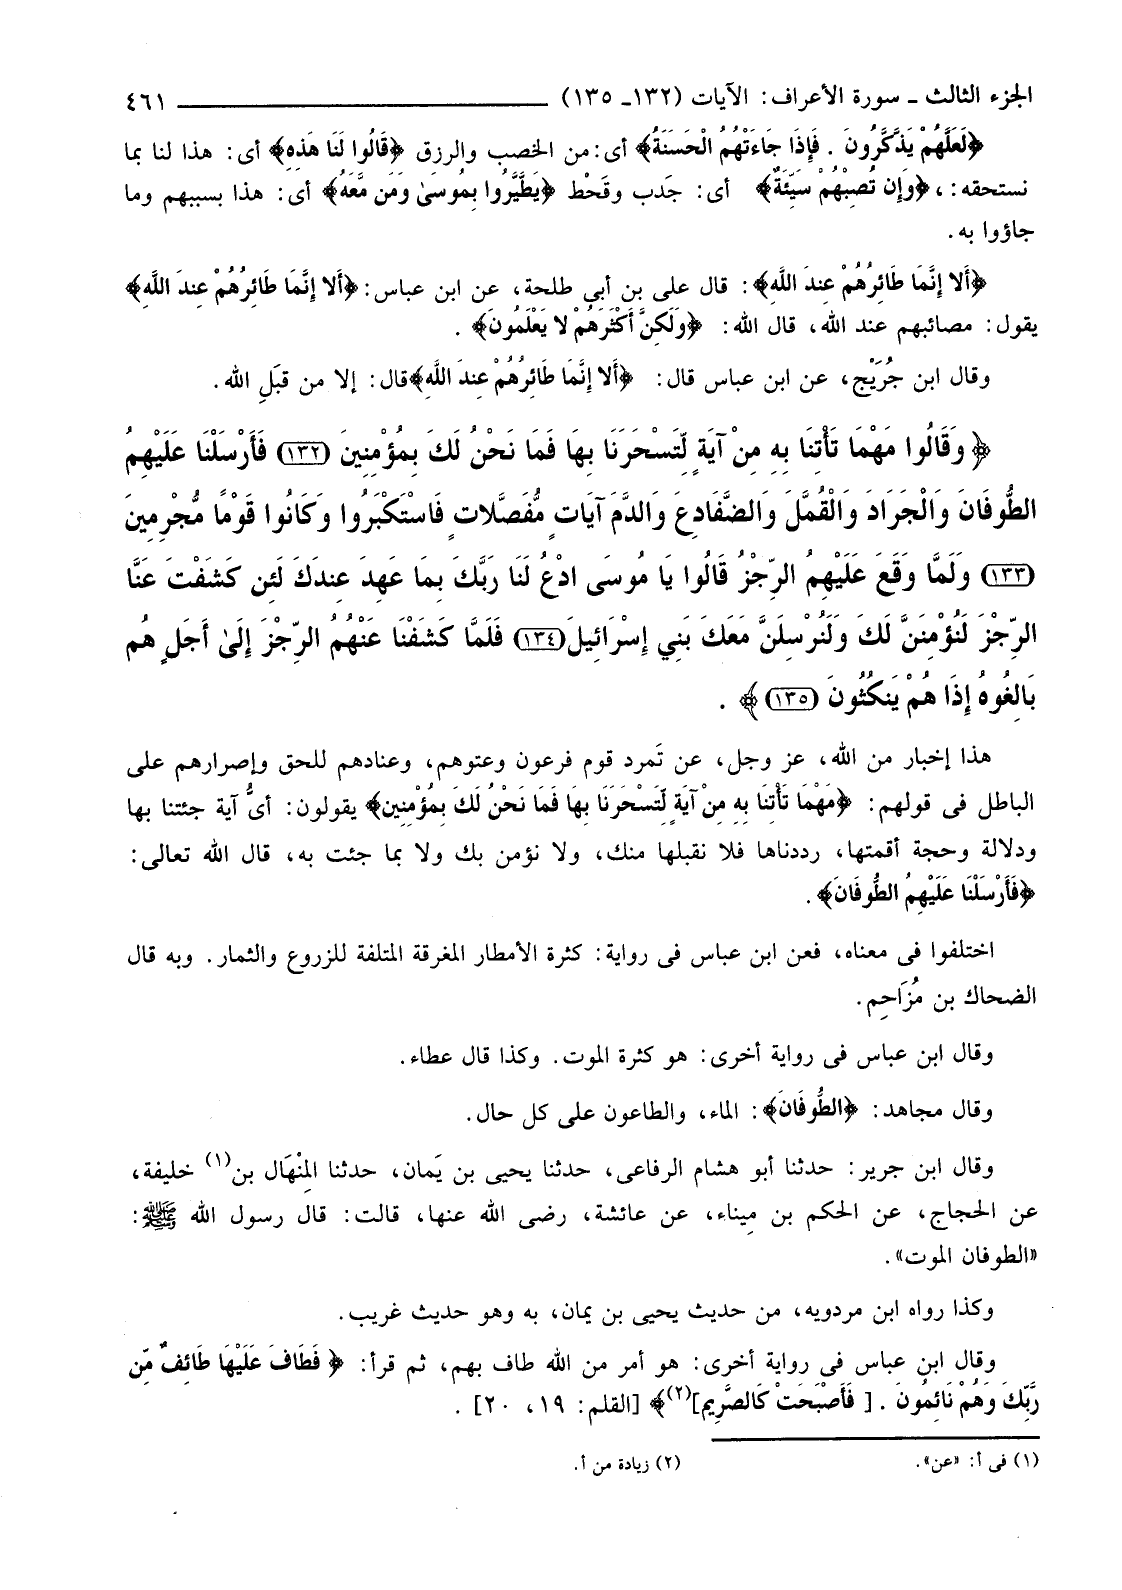 الجزء الثالث ـ سورة الأعراف: الآيات (١٣٢ـ ١٣٥) ٤٦١
﴿لَعَلَّهُمْ يَذَّكَّرُونَ . فَإِذَا جَاءَتْهُمُ الْحَسَنَةُ﴾ أى: من الخصب والرزق ﴿قَالُوا لَنَا هَذِهِ﴾ أى: هذا لنا بما
نستحقه: ، ﴿وَإِن تُصِبْهُمْ سَيِّئَةٌ﴾ أى: جَدب وقَحْط ﴿يَطَّيَّرُوا بِمُوسَىٰ وَمَن مَّعَهُ﴾ أى: هذا بسببهم وما
جاؤوا به.
﴿أَلا إِنَّمَا طَائِرُهُمْ عِندَ اللَّهِ﴾: قال على بن أبى طلحة، عن ابن عباس: ﴿أَلا إِنَّمَا طَائِرُهُمْ عِندَ اللَّهِ﴾
يقول: مصائبهم عند الله، قال الله: ﴿وَلَكِنَّ أَكْثَرَهُمْ لا يَعْلَمُونَ﴾ .
وقال ابن جُرَيْج، عن ابن عباس قال: ﴿أَلا إِنَّمَا طَائِرُهُمْ عِندَ اللَّهِ﴾قال: إلا من قبَل الله.
﴿ وَقَالُوا مَهْمَا تَأْتِنَا بِهِ مِنْ آيَةٍ لِّتَسْحَرَنَا بِهَا فَمَا نَحْنُ لَكَ بِمُؤْمِنِينَ (١٣٢) فَأَرْسَلْنَا عَلَيْهِمُ
الطُّوفَانَ وَالْجَرَادَ وَالْقُمَّلَ وَالضَّفَادِعَ وَالدَّمَ آيَاتٍ مُّفَصَّلاتٍ فَاسْتَكْبَرُوا وَكَانُوا قَوْمًا مُّجْرِمِينَ
(١٣٣) وَلَمَّا وَقَعَ عَلَيْهِمُ الرِّجْزُ قَالُوا يَا مُوسَى ادْعُ لَنَا رَبَّكَ بِمَا عَهِدَ عِندَكَ لَئِن كَشَفْتَ عَنَّا
الرِّجْزَ لَنُؤْمِنَنَّ لَكَ وَلَنُرْسِلَنَّ مَعَكَ بَنِي إِسْرَائِيلَ (١٣٤) فَلَمَّا كَشَفْنَا عَنْهُمُ الرِّجْزَ إِلَىٰ أَجَلٍ هُم
بَالِغُوهُ إِذَا هُمْ يَنكُثُونَ (١٣٥) ﴾ .
هذا إخبار من الله، عز وجل، عن تَمرد قوم فرعون وعتوهم، وعنادهم للحق وإصرارهم على
الباطل فى قولهم: ﴿مَهْمَا تَأْتِنَا بِهِ مِنْ آيَةٍ لِّتَسْحَرَنَا بِهَا فَمَا نَحْنُ لَكَ بِمُؤْمِنِين﴾ يقولون: أىُّ آية جئتنا بها
ودلالة وحجة أقمتها، رددناها فلا نقبلها منك، ولا نؤمن بك ولا بما جئت به، قال الله تعالى:
﴿فَأَرْسَلْنَا عَلَيْهِمُ الطُّوفَانَ﴾ .
اختلفوا فى معناه، فعن ابن عباس فى رواية: كثرة الأمطار المغرقة المتلفة للزروع والثمار. وبه قال
الضحاك بن مُزَاحِم.
وقال ابن عباس فى رواية أخرى: هو كثرة الموت. وكذا قال عطاء.
وقال مجاهد: ﴿الطُّوفَانَ﴾: الماء، والطاعون على كل حال.
وقال ابن جرير: حدثنا أبو هشام الرفاعى، حدثنا يحيى بن يَمان، حدثنا المِنْهَال بن(١) خليفة،
عن الحجاج، عن الحكم بن مِيناء، عن عائشة، رضى الله عنها، قالت: قال رسول الله ﷺ:
«الطوفان الموت».
وكذا رواه ابن مردويه، من حديث يحيى بن يمان، به وهو حديث غريب.
وقال ابن عباس فى رواية أخرى: هو أمر من الله طاف بهم، ثم قرأ: ﴿ فَطَافَ عَلَيْهَا طَائِفٌ مِّن
رَّبِّكَ وَهُمْ نَائِمُونَ . [ فَأَصْبَحَتْ كَالصَّرِيمِ](٢)﴾ [القلم: ١٩، ٢٠] .
(١) فى أ: «عن». (٢) زيادة من أ.